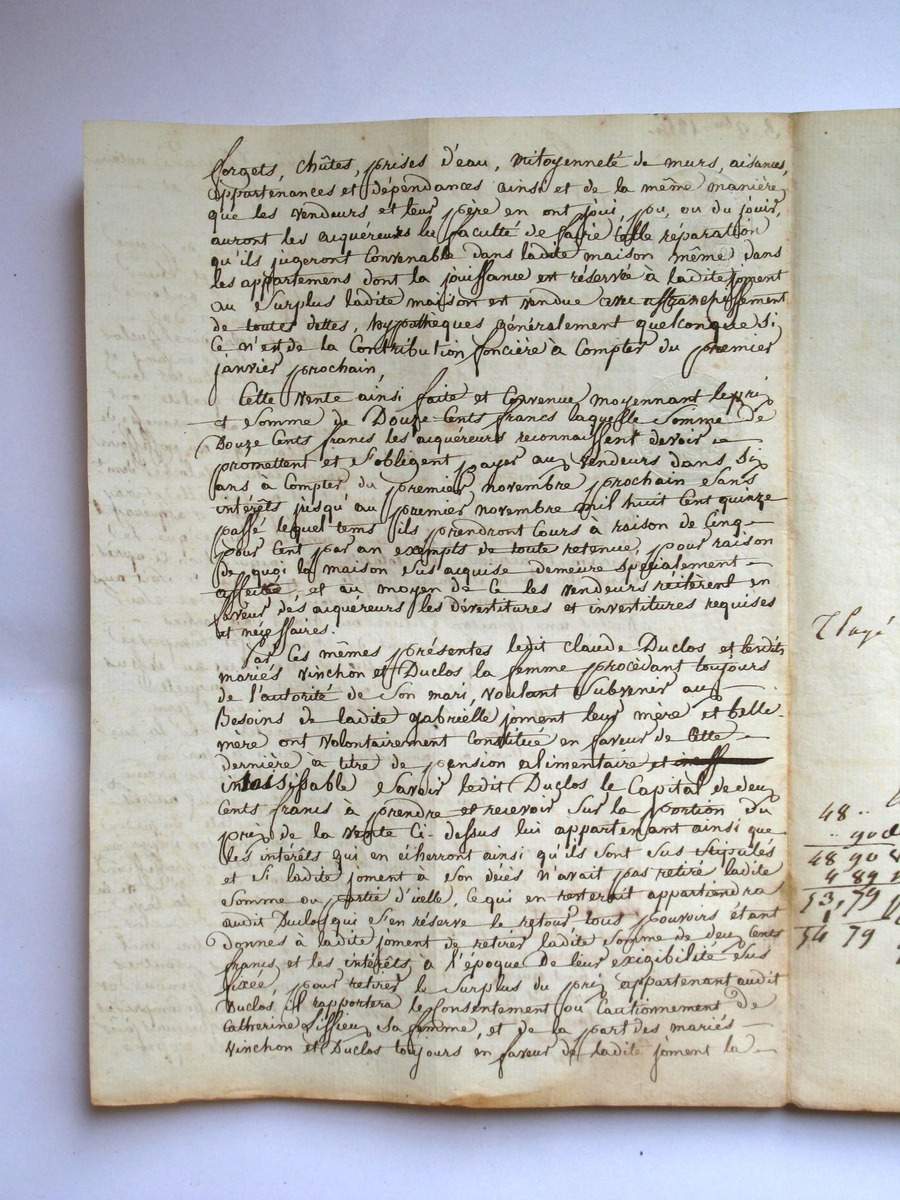 forgets, chûtes, prises d'eau, mitoyenneté de murs, aisances,
appartenances et dépendances ainsi et de la même manière
que les vendeurs et leur père en ont joui, pu, ou du jouir,
auront les aiquéreurs la faculté de faire telle réparation
qu'ils jugeront convenable dans ladite maison même dans
les appartemens dont la jouissance est réservée à ladite joment
au surplus ladite maison est vendue avec affranchissement
de toutes dettes, hypotheques généralement quelconque si
ce n'est de la contribution foncière à compter du premier
janvier prochain,
Cette vente ainsi faite et convenue moyennant le prix
et somme de Douze cents francs laquelle somme de
Douze cents francs les aiquéreurs reconnaissent devoir
promettent et s'obligent payer aux vendeurs dans six
ans à compter du premier novembre prochain sans
intérêts jusqu'au premier novembre mil huit cent quinze
passé lequel tems ils prendront cours à raison de cinq
pour cent par an exempts de toute retenue, pour raison
de quoi la maison sus acquise demeure spécialement
affectée, et au moyen de ce les vendeurs réitèrent en
faveur des aiquéreurs les dévertitures et invertitures requises
et nécessaires.
Par ces mêmes présentes ledit claude Duclos et lesdits
mariés vinchon et Duclos la femme procédant toujours
de l'autorité de son mari, voulant subvenir aux
Besoins de ladite gabrielle joment leur mère et belle
mère ont volontairement constitué en faveur de cette
dernière à titre de pension alimentaire et
insaisissable savoir ledit Duclos le capital de deux
cents francs à prendre et recevoir sur la portion du
prix de la vente ci-dessus lui appartenant ainsi que
les intérêts qui en écherront ainsi qu'ils sont sus stipulés
et si ladite joment à son decès n'avait pas retiré ladite
somme ou partie d'icelle, ce qui en resterait appartiendra
audit Duclos qui s'en réserve le retour, tous pouvoirs étant
donnés à ladite joment de retirer ladite somme de deux cents
francs et les intérêts à l'époque de leur exigibilité sus
fixée, pour retirer le surplus du prix appartenant audit
Duclos il rapportera le consentement ou cautionnement de
catherine sa femme, et de la part des mariés
vinchon et Duclos toujours en faveur de ladite joment la
48 ..
.. 90
48 90
4 89
53,79
1
54 79